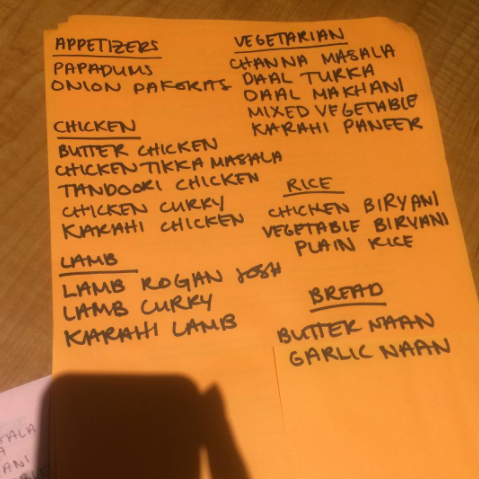 APPETIZERS
PAPADUMS
ONION PAKORAS
CHICKEN
BUTTER CHICKEN
CHICKEN TIKKA MASALA
TANDOORI CHICKEN
CHICKEN CURRY
KARAHI CHICKEN
LAMB
LAMB ROGAN JOSH
LAMB CURRY
KARAHI LAMB
VEGETARIAN
CHANNA MASALA
DAAL TURKA
DAAL MAKHANI
MIXED VEGETABLE
KARAHI PANEER
RICE
CHICKEN BIRYANI
VEGETABLE BIRYANI
PLAIN RICE
BREAD
BUTTER NAAN
GARLIC NAAN